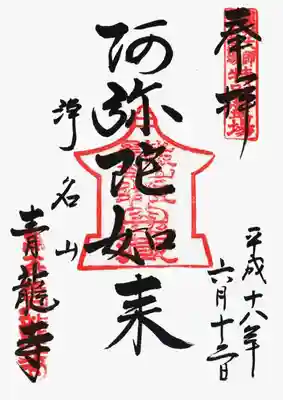 奉拝
平成十八年
六月十二日
阿弥陀如来
浄名山
青龍寺